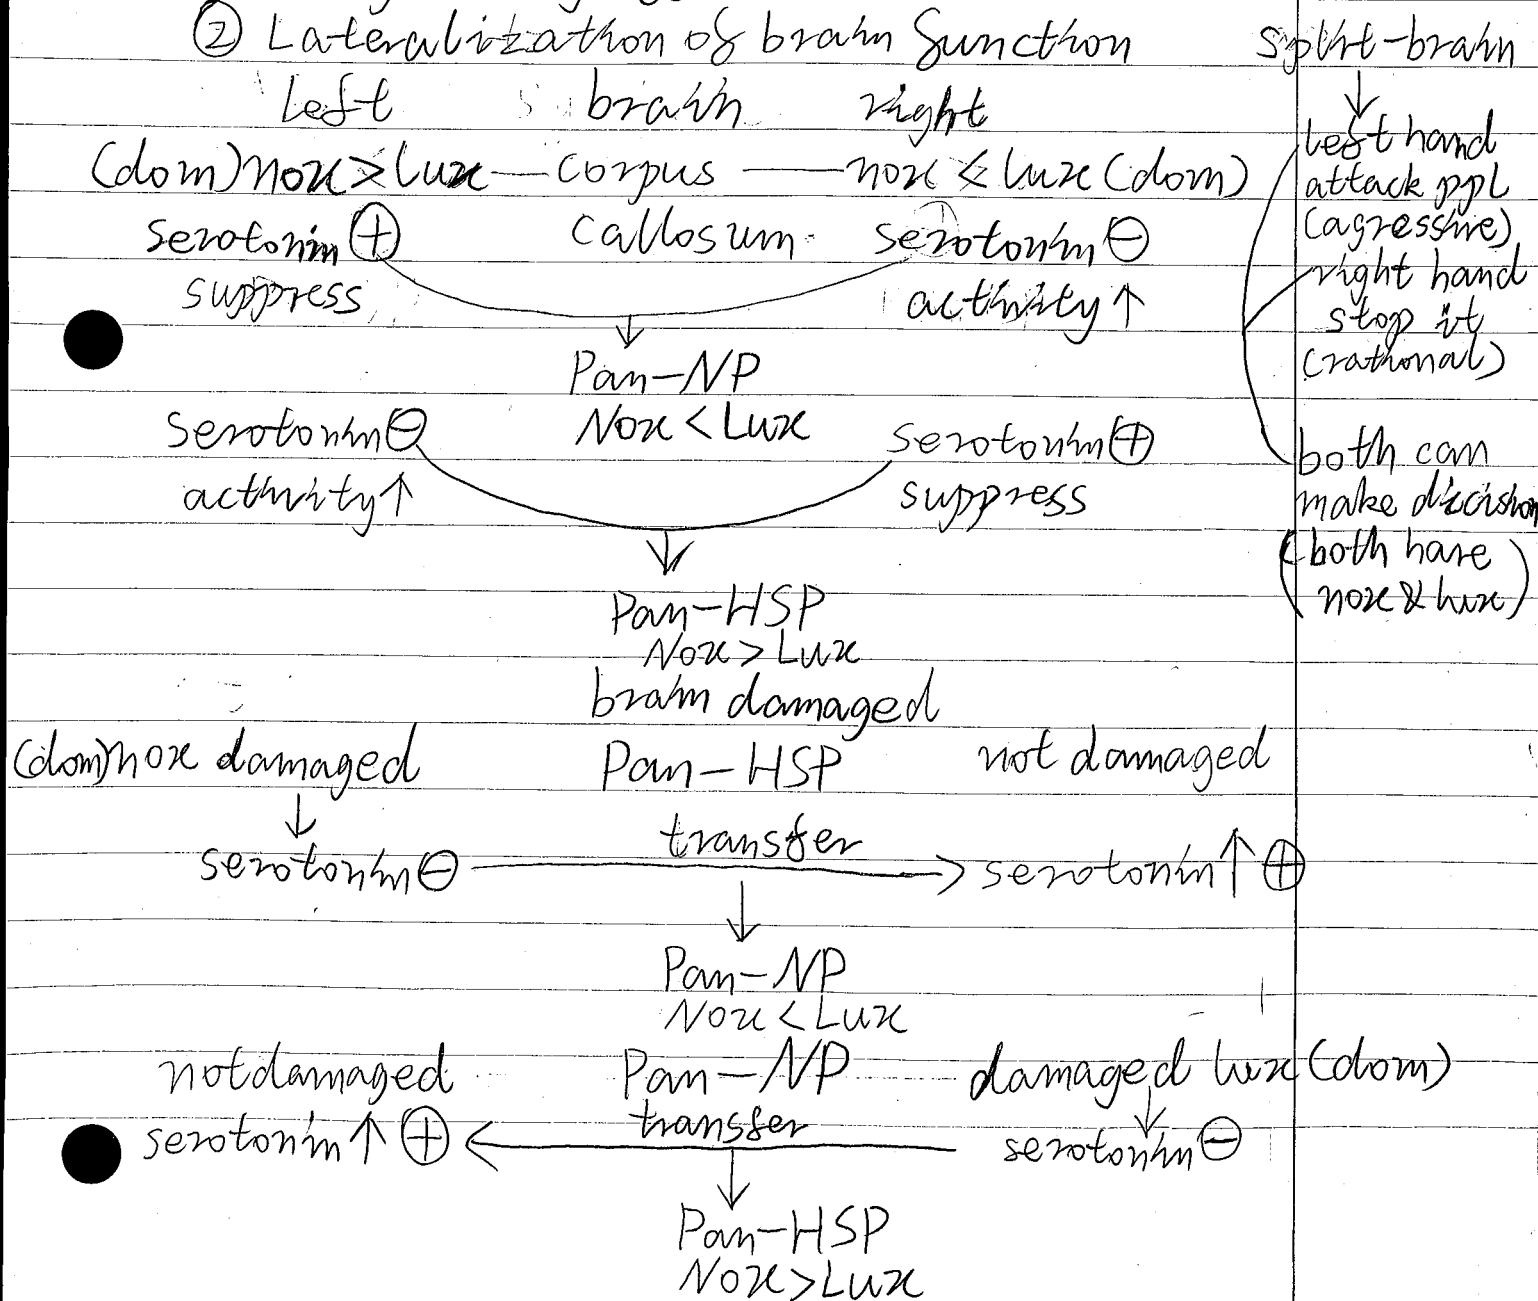 ② Lateralization of brain function
left brain right
(dom) nox > lux — corpus — nox < lux (dom)
serotonin ⊕ callosum serotonin ⊖
suppress activity ↑
Pan-NP
Nox < Lux
serotonin ⊖ serotonin ⊕
activity ↑ suppress
Pan-HSP
Nox > Lux
brain damaged
(dom) nox damaged Pan-HSP not damaged
transfer
serotonin ⊖ → serotonin ↑ ⊕
Pan-NP
Nox < Lux
not damaged Pan-NP damaged lux (dom)
transfer
serotonin ↑ ⊕ ← serotonin ⊖
Pan-HSP
Nox > Lux
split-brain
↓
left hand
attack ppl
(agressive)
right hand
stop it
(rational)
both can
make dicision
(both have
nox & lux)